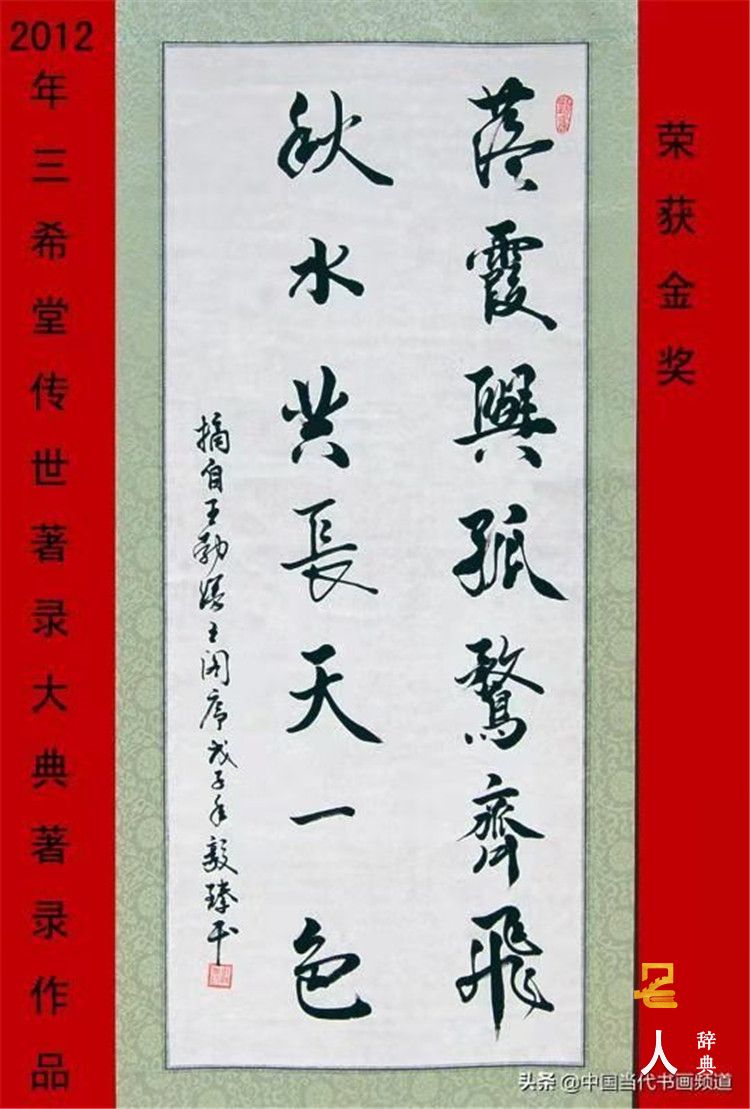 2012
年三希堂传世著录大典著录作品
荣获金奖
落霞與孤鶩齊飛
秋水共長天一色
摘自王勃滕王阁序戊子年毅臻
人
辞典
头条 @中国当代书画频道